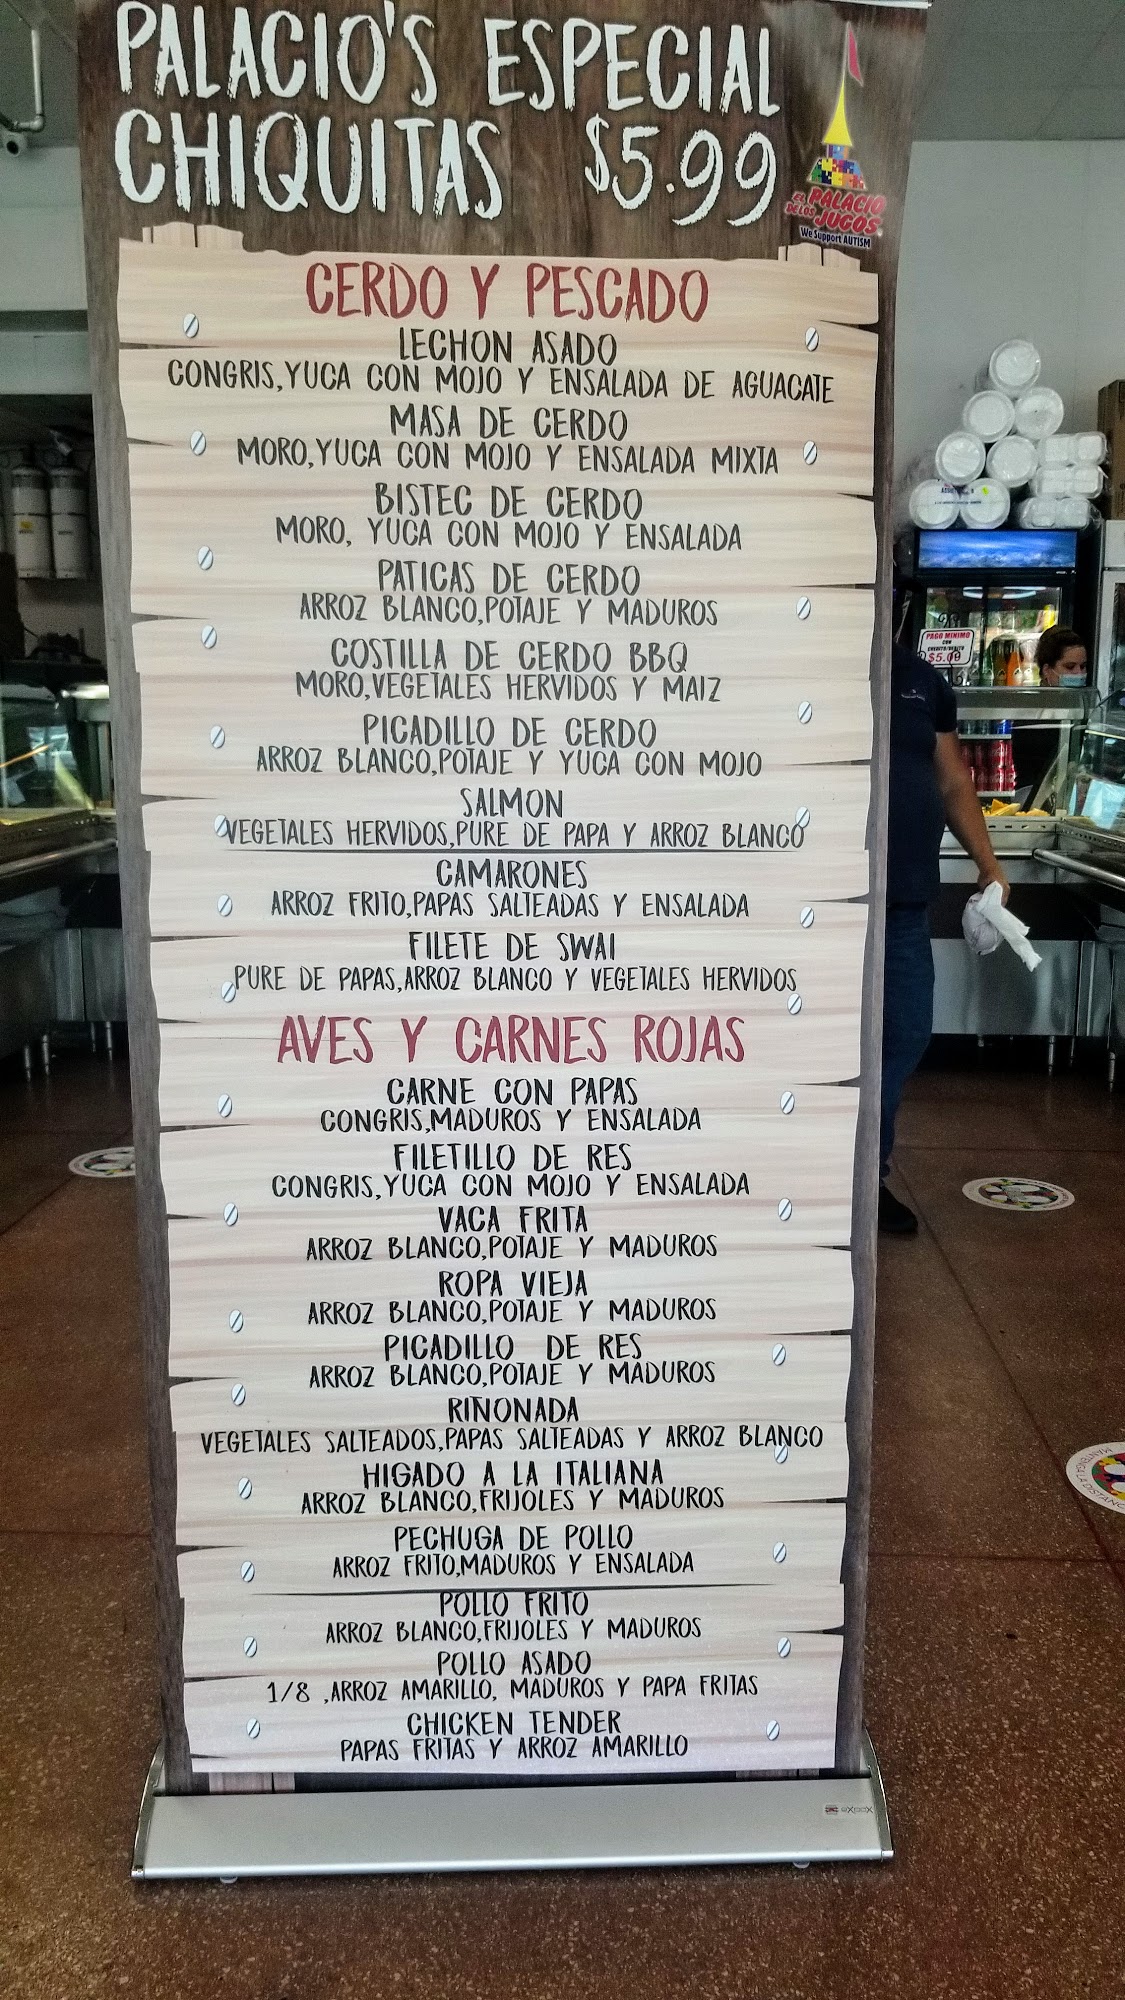 PALACIO'S ESPECIAL
CHIQUITAS $5.99
EL PALACIO
DE LOS JUGOS
We Support AUTISM
CERDO Y PESCADO
LECHON ASADO
CONGRIS,YUCA CON MOJO Y ENSALADA DE AGUACATE
MASA DE CERDO
MORO,YUCA CON MOJO Y ENSALADA MIXTA
BISTEC DE CERDO
MORO, YUCA CON MOJO Y ENSALADA
PATICAS DE CERDO
ARROZ BLANCO,POTAJE Y MADUROS
COSTILLA DE CERDO BBQ
MORO,VEGETALES HERVIDOS Y MAIZ
PICADILLO DE CERDO
ARROZ BLANCO,POTAJE Y YUCA CON MOJO
SALMON
VEGETALES HERVIDOS,PURE DE PAPA Y ARROZ BLANCO
CAMARONES
ARROZ FRITO,PAPAS SALTEADAS Y ENSALADA
FILETE DE SWAI
PURE DE PAPAS,ARROZ BLANCO Y VEGETALES HERVIDOS
AVES Y CARNES ROJAS
CARNE CON PAPAS
CONGRIS,MADUROS Y ENSALADA
FILETILLO DE RES
CONGRIS,YUCA CON MOJO Y ENSALADA
VACA FRITA
ARROZ BLANCO,POTAJE Y MADUROS
ROPA VIEJA
ARROZ BLANCO,POTAJE Y MADUROS
PICADILLO DE RES
ARROZ BLANCO,POTAJE Y MADUROS
RIÑONADA
VEGETALES SALTEADOS,PAPAS SALTEADAS Y ARROZ BLANCO
HIGADO A LA ITALIANA
ARROZ BLANCO,FRIJOLES Y MADUROS
PECHUGA DE POLLO
ARROZ FRITO,MADUROS Y ENSALADA
POLLO FRITO
ARROZ BLANCO,FRIJOLES Y MADUROS
POLLO ASADO
1/8 ,ARROZ AMARILLO, MADUROS Y PAPA FRITAS
CHICKEN TENDER
PAPAS FRITAS Y ARROZ AMARILLO
PAGO MINIMO
CON
CREDITO/DEBITO
$5.09
MANTENGA LA DISTANC